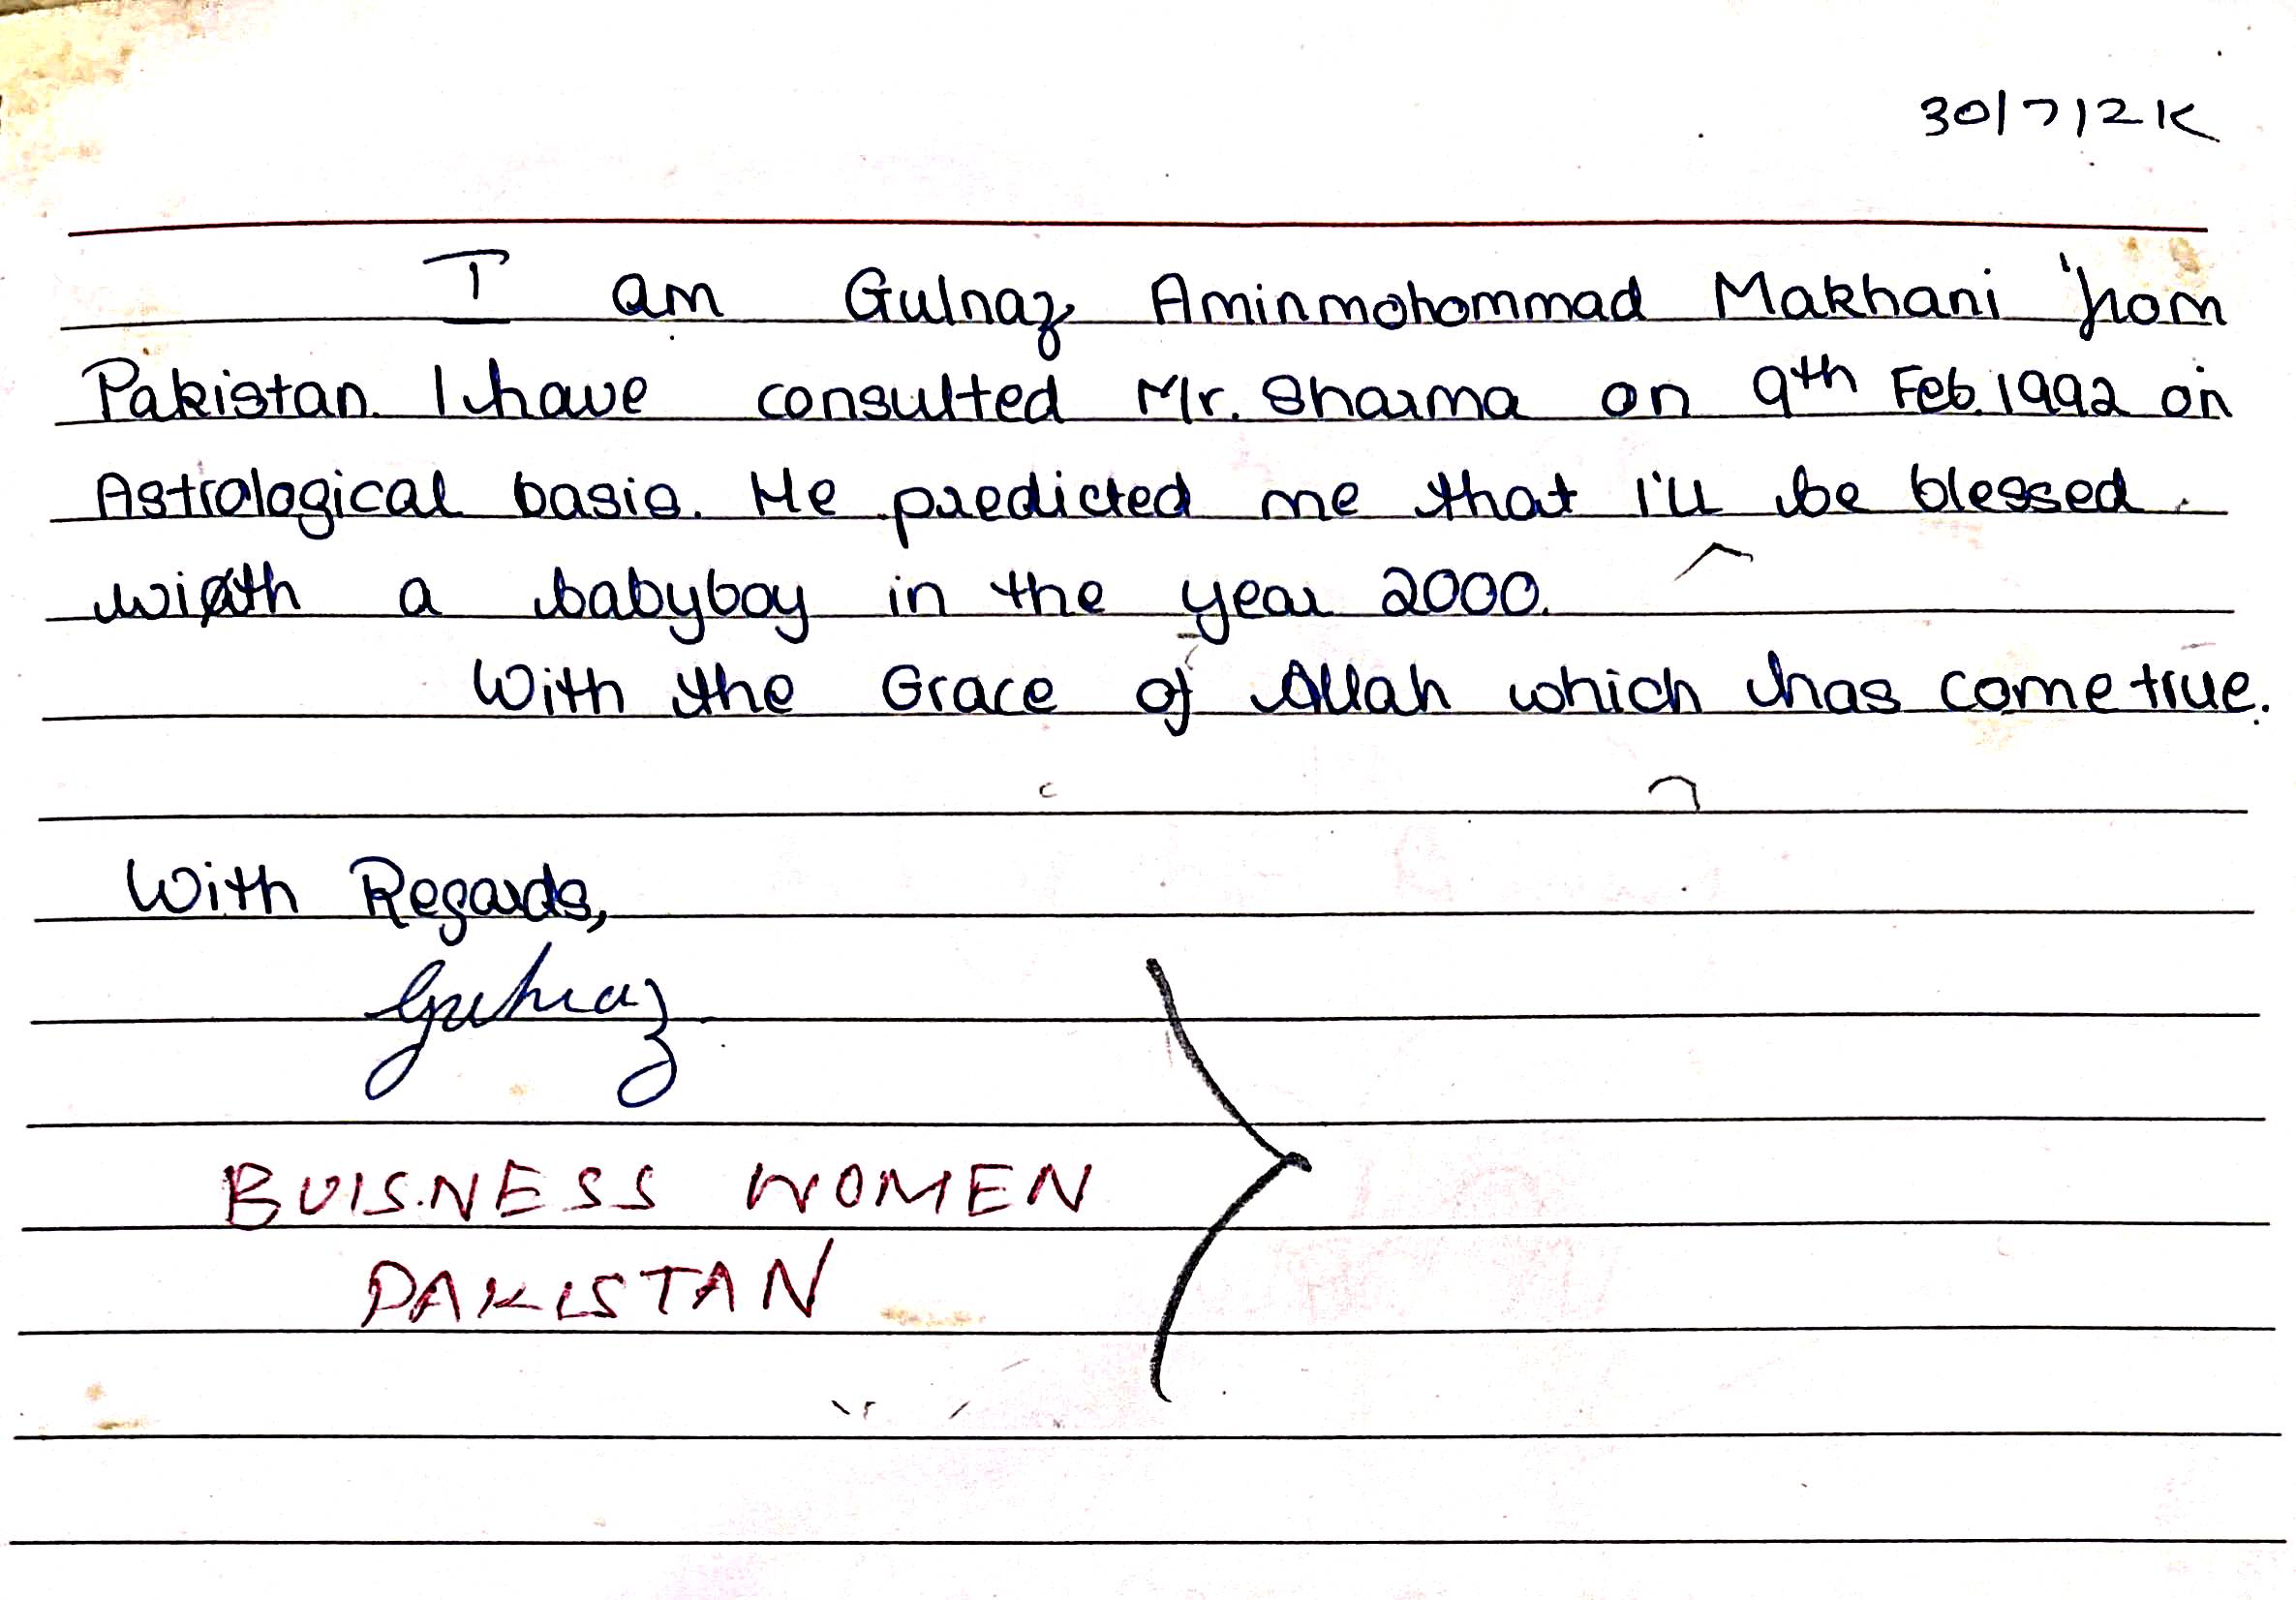 30/7/2K
I am Gulnaz Aminmohommad Makhani from
Pakistan. I have consulted Mr. Sharma on 9th Feb. 1992 on
Astrological basis. He predicted me that I'll be blessed
with a babyboy in the year 2000.
With the Grace of Allah which has come true.
With Regards,
Gulnaz
BUISNESS WOMEN
PAKISTAN